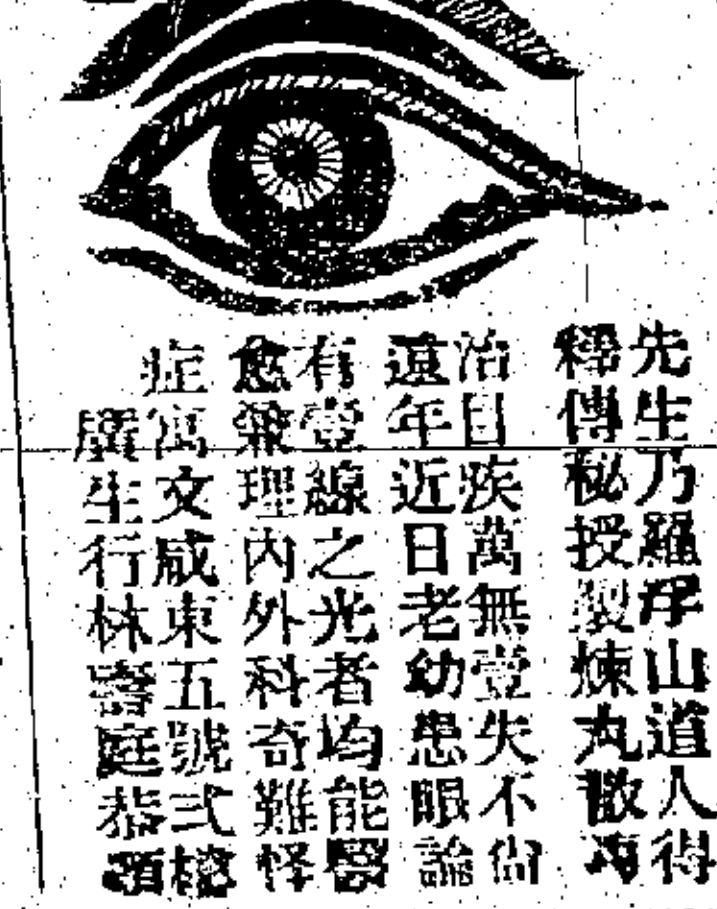 先生乃羅浮山道人得
釋傳秘授製煉丸散專
治目疾萬無壹失不
遠年近日老幼患眼論
有壹線之光者均能醫
愈兼理內外科奇難怪
症寓文咸東五號弍樓
廣生行林壽庭恭頌